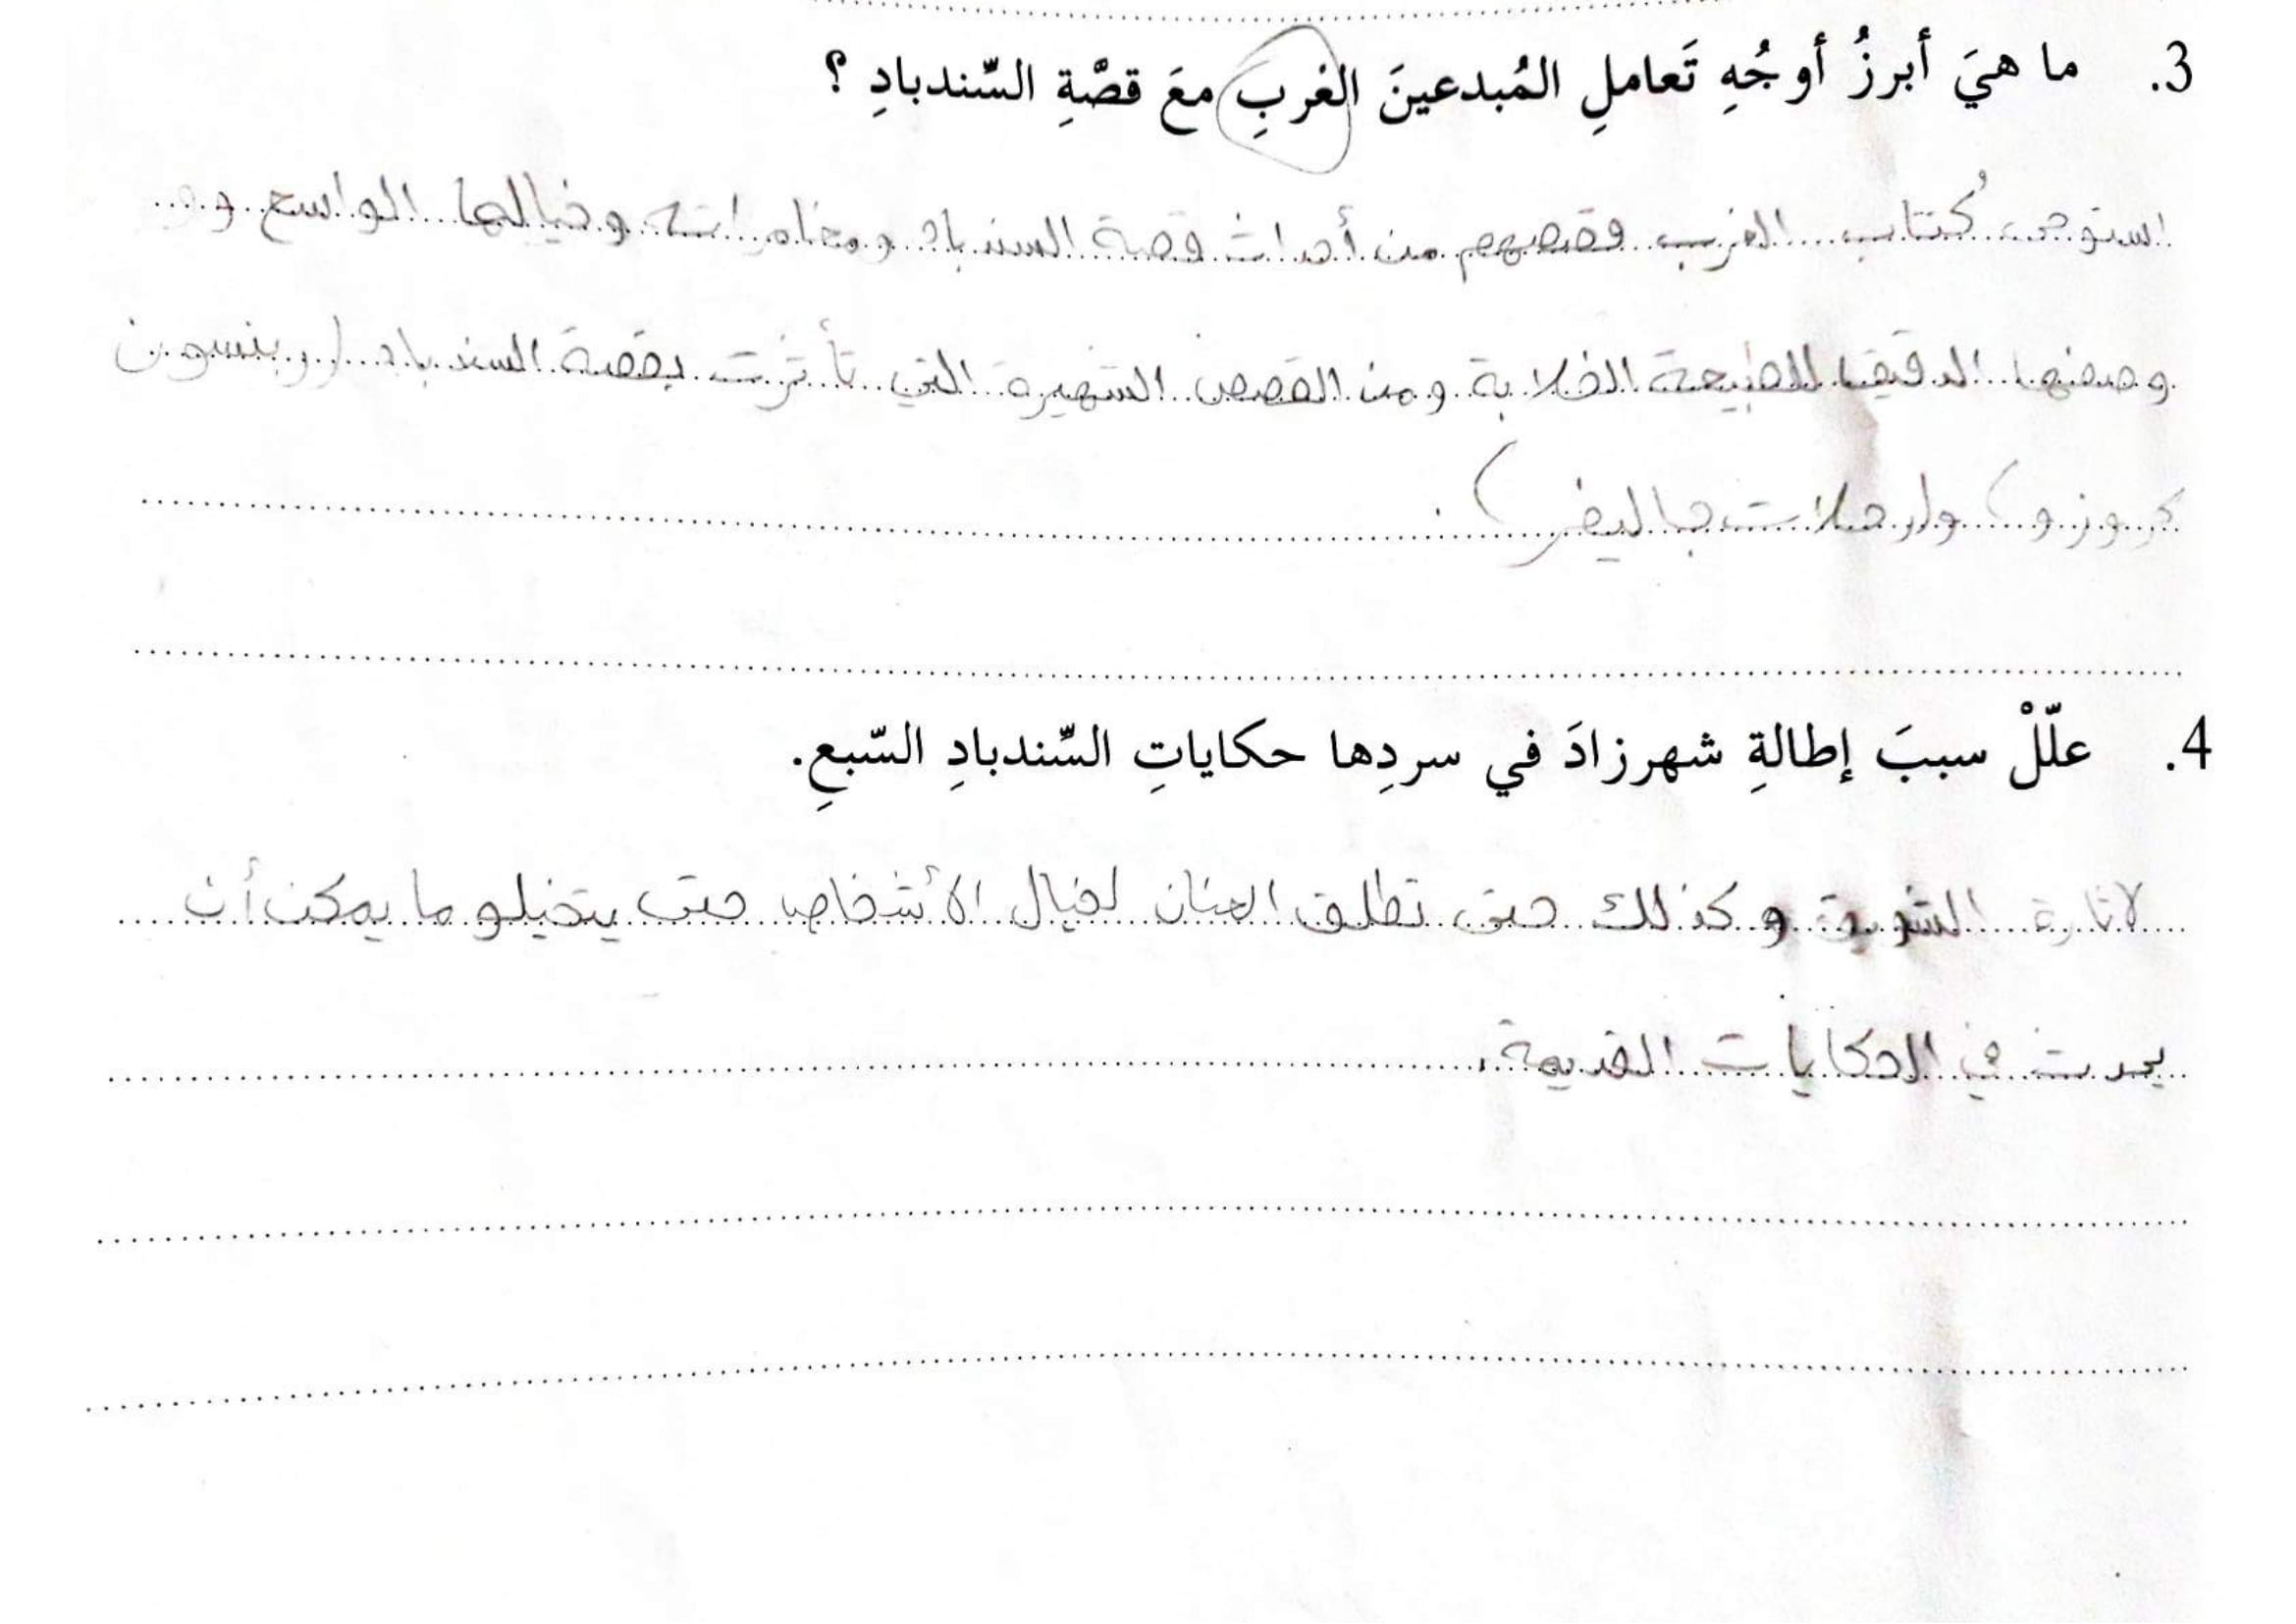 3. ما هيَ أبرزُ أوجُهِ تَعاملِ المُبدعينَ الغربِ معَ قصّةِ السّندبادِ ؟
استوحى كُتاب الغرب قصصهم من أحداث قصة السندباد ومغامراته وخيالها الواسع و
وصفها الدقيق للطبيعة الخلابة ومن القصص الشهيرة التي تأثرت بقصة السندباد (روبنسون
كروزو) و(رحلات جاليفر) .
4. علّلْ سببَ إطالةِ شهرزادَ في سردِها حكاياتِ السِّندبادِ السّبعِ.
لاثارة التشويق وكذلك حتى تطلق العنان لخيال الأشخاص حتى يتخيلو ما يمكن أن
يحدث في الحكايات القديمة.